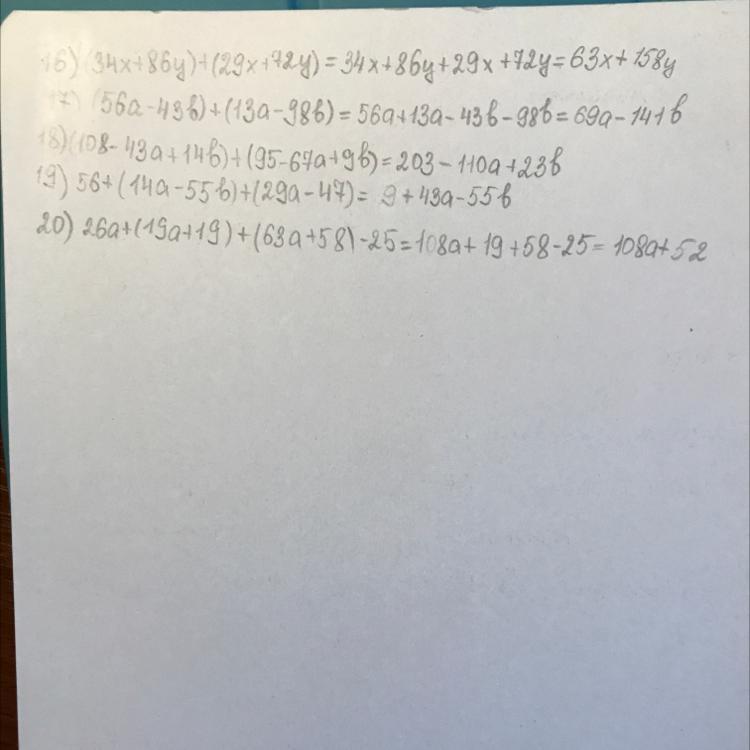 16) (34x+86y)+(29x+72y)=34x+86y+29x+72y=63x+158y
17) (56a-43b)+(13a-98b)=56a+13a-43b-98b=69a-141b
18) (108-43a+14b)+(95-67a+9b)=203-110a+23b
19) 56+(14a-55b)+(29a-47)= 9+43a-55b
20) 26a+(19a+19)+(63a+58)-25=108a+19+58-25=108a+52